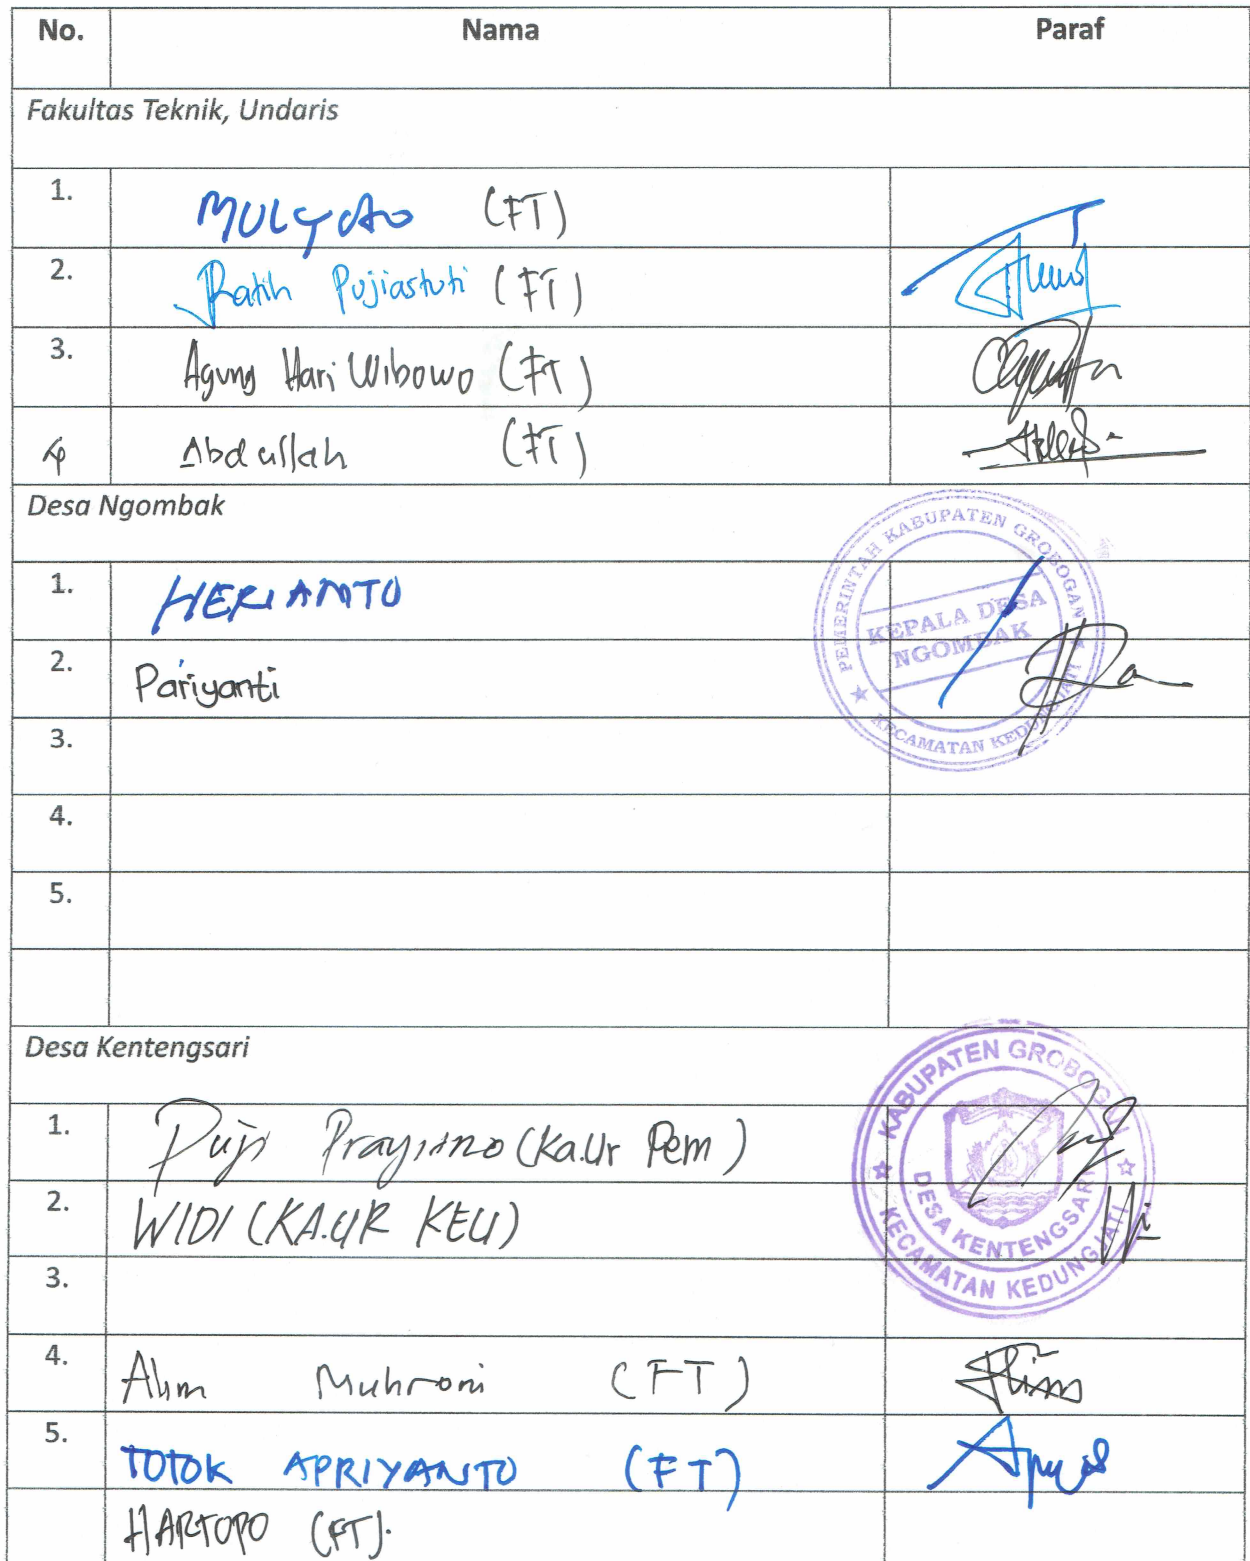 No. Nama Paraf
Fakultas Teknik, Undaris
1. MULYONO (FT)
2. Ratih Pujiastuti (FT)
3. Agung Hari Wibowo (FT)
4 Abdullah (FT)
Desa Ngombak
PEMERINTAH KABUPATEN GROBOGAN
KEPALA DESA
NGOMBAK
KECAMATAN KEDUNGJATI
1. HERIANTO
2. Pariyanti
3.
4.
5.
Desa Kentengsari
KABUPATEN GROBOGAN
DESA KENTENGSARI
KECAMATAN KEDUNGJATI
1. Puji Prayitno (Ka.Ur Pem)
2. WIDI (KA.UR KEU)
3.
4. Alim Muhroni (FT)
5. TOTOK APRIYANTO (FT)
HARTOPO (FT).